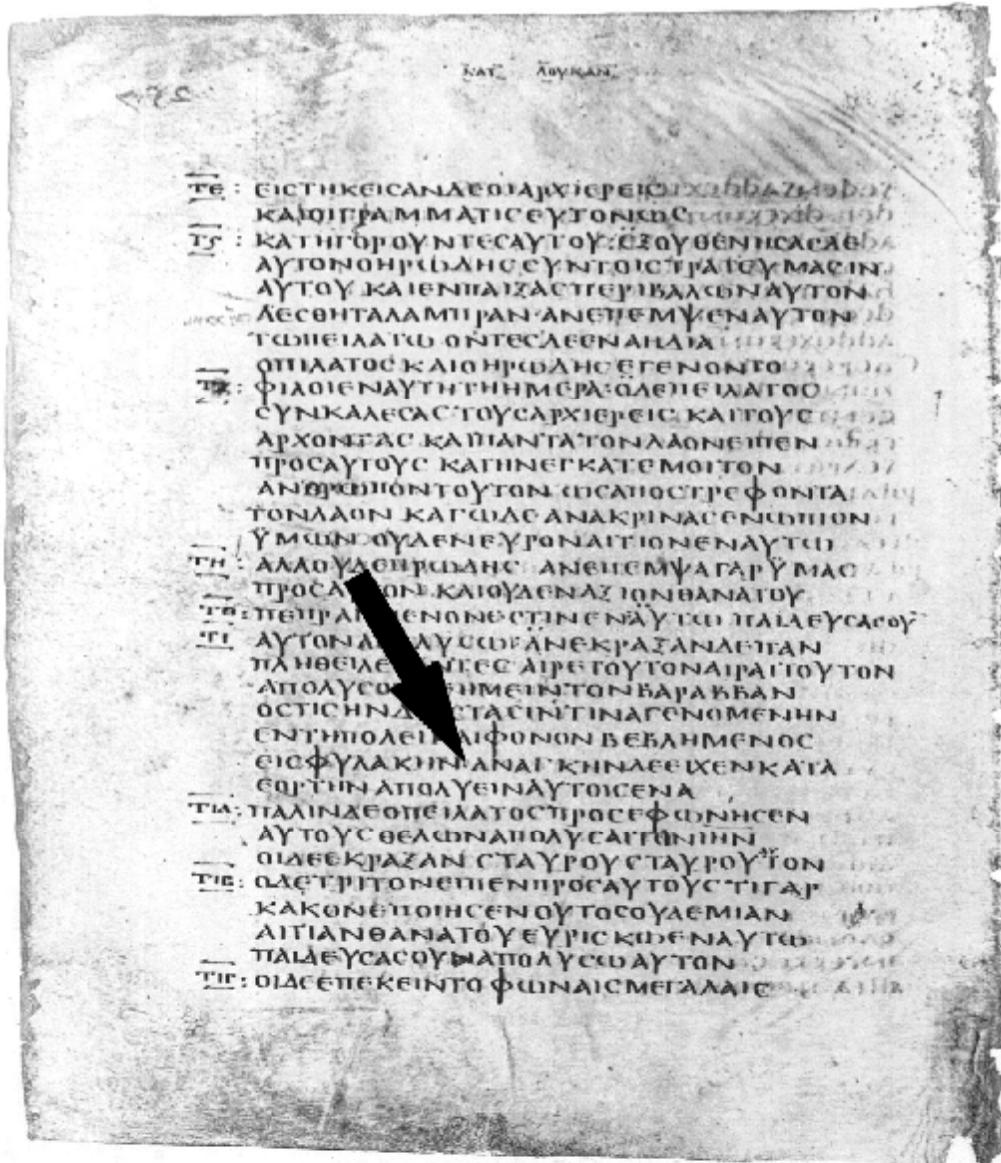 ΚΑΤ ΛΟΥΚΑΝ
ΤΕ : ΕΙΣΤΗΚΕΙΣΑΝΔΕΟΙΑΡΧΙΕΡΕΙΣ
ΚΑΙΟΙΓΡΑΜΜΑΤΙΣΕΥΤΟΝΩΣ
ΤϚ : ΚΑΤΗΓΟΡΟΥΝΤΕΣΑΥΤΟΥ:ΕΞΟΥΘΕΝΗΣΑΣΔΕ
ΑΥΤΟΝΟΗΡΩΔΗΣΣΥΝΤΟΙΣΤΡΑΤΕΥΜΑΣΙΝ
ΑΥΤΟΥ ΚΑΙΕΝΠΑΙΞΑΣΠΕΡΙΒΑΛΩΝΑΥΤΟΝ
ΔΕΣΘΗΤΑΛΑΜΠΡΑΝ·ΑΝΕΠΕΜΨΕΝΑΥΤΟΝ
ΤΩΠΕΙΛΑΤΩ ΟΝΤΕΣΔΕΕΝΑΗΔΙΑ
ΟΠΙΛΑΤΟΣ ΚΑΙΟΗΡΩΔΗΣ ΕΓΕΝΟΝΤΟ
ΦΙΛΟΙΕΝΑΥΤΗΤΗΗΜΕΡΑ·ΟΔΕΠΕΙΛΑΤΟΣ
ΣΥΝΚΑΛΕΣΑΣ ΤΟΥΣΑΡΧΙΕΡΕΙΣ ΚΑΙΤΟΥΣ
ΑΡΧΟΝΤΑΣ ΚΑΙΠΑΝΤΑΤΟΝΛΑΟΝΕΙΠΕΝ
ΠΡΟΣΑΥΤΟΥΣ ΚΑΤΗΝΕΓΚΑΤΕΜΟΙΤΟΝ
ΑΝΘΡΩΠΟΝΤΟΥΤΟΝ ΩΣΑΠΟΣΤΡΕΦΟΝΤΑ
ΤΟΝΛΑΟΝ ΚΑΓΩΔΕ ΑΝΑΚΡΙΝΑΣΕΝΩΠΙΟΝ
ΫΜΩΝ ΟΥΔΕΝΕΥΡΟΝΑΙΤΙΟΝΕΝΑΥΤΩ
ΤΗ : ΑΛΛΟΥΔΕΗΡΩΔΗΣ ΑΝΕΠΕΜΨΑΓΑΡΫΜΑΣ
ΠΡΟΣΑΥΤΟΝ ΚΑΙΟΥΔΕΝΑΞΙΟΝΘΑΝΑΤΟΥ
ΤΘ : ΠΕΠΡΑΓΜΕΝΟΝΕΣΤΙΝΕΝΑΫΤΩ ΠΑΙΔΕΥΣΑΣΟΥ
ΤΙ ΑΥΤΟΝΑΠΟΛΥΣΩ·ΑΝΕΚΡΑΞΑΝΔΕΠΑΝ
ΠΛΗΘΕΙΛΕΓΟΝΤΕΣ ΑΙΡΕΤΟΥΤΟΝΑΙΡΑΙΤΟΥΤΟΝ
ΑΠΟΛΥΣΟΝΔΕΗΜΕΙΝΤΟΝΒΑΡΑΒΒΑΝ
ΟΣΤΙΣΗΝΔΙΑΣΤΑΣΙΝΤΙΝΑΓΕΝΟΜΕΝΗΝ
ΕΝΤΗΠΟΛΕΙΚΑΙΦΟΝΟΝ ΒΕΒΛΗΜΕΝΟΣ
ΕΙΣΦΥΛΑΚΗΝ ΑΝΑΓΚΗΝΔΕΕΙΧΕΝΚΑΤΑ
ΕΟΡΤΗΝ ΑΠΟΛΥΕΙΝΑΥΤΟΙΣΕΝΑ
ΤΙΑ : ΠΑΛΙΝΔΕΟΠΕΙΛΑΤΟΣΠΡΟΣΕΦΩΝΗΣΕΝ
ΑΥΤΟΥΣ ΘΕΛΩΝΑΠΟΛΥΣΑΙΤΟΝΙΗΝ
ΟΙΔΕΕΚΡΑΞΑΝ ΣΤΑΥΡΟΥΣΤΑΥΡΟΥΤΟΝ
ΤΙΒ : ΟΔΕΤΡΙΤΟΝΕΙΠΕΝΠΡΟΣΑΥΤΟΥΣ ΤΙΓΑΡ
ΚΑΚΟΝΕΠΟΙΗΣΕΝΟΥΤΟΣΟΥΔΕΜΙΑΝ
ΑΙΤΙΑΝΘΑΝΑΤΟΥΕΥΡΙΣΚΩΕΝΑΥΤΩ
ΠΑΙΔΕΥΣΑΣΟΥΝΑΠΟΛΥΣΩΑΥΤΟΝ
ΤΙΓ : ΟΙΔΕΕΠΕΚΕΙΝΤΟ ΦΩΝΑΙΣΜΕΓΑΛΑΙΣ